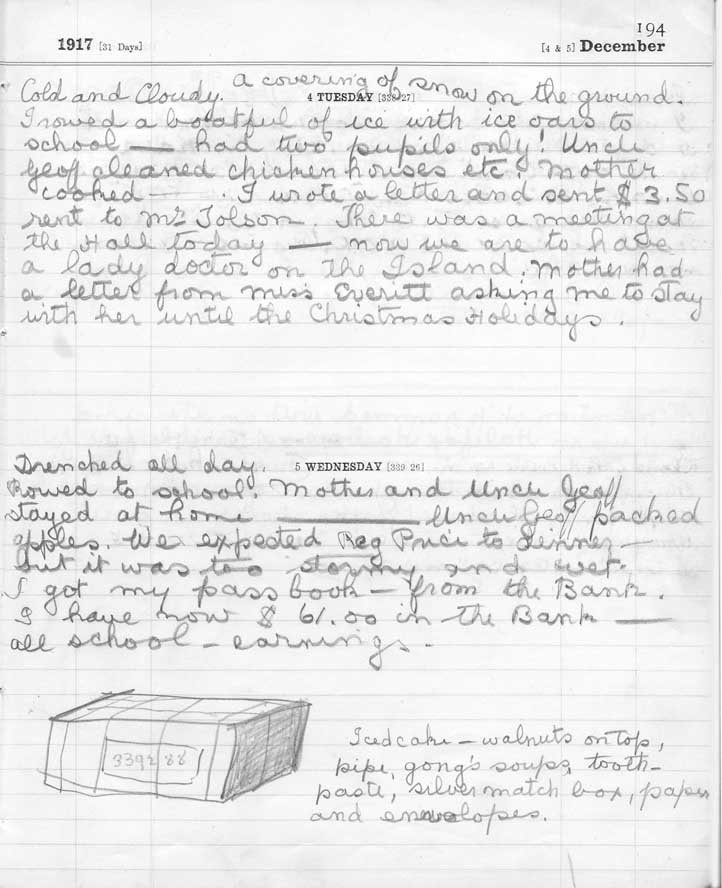 194
1917 [31 Days] [4 & 5] December
a covering of snow on the ground.
Cold and Cloudy. 4 TUESDAY [338-27]
I rowed a boatful of ice with ice oars to
school — had two pupils only! Uncle
Geoff cleaned chicken houses etc. Mother
cooked — . I wrote a letter and sent $3.50
rent to Mr Tolson. There was a meeting at
the Hall today — now we are to have
a lady doctor on the Island. Mother had
a letter from Miss Everitt asking me to stay
with her until the Christmas Holidays.
Drenched all day. 5 WEDNESDAY [339-26]
Rowed to school. Mother and Uncle Geoff
stayed at home — Uncle Geoff packed
apples. We expected Reg Price to dinner —
but it was too stormy and wet.
I got my pass book — from the Bank.
I have now $61.00 in the Bank —
all school — earnings. -
3392 88
Iced cake — walnuts on top,
pipe, gong's soups, tooth-
paste, silver match box, paper
and envelopes.